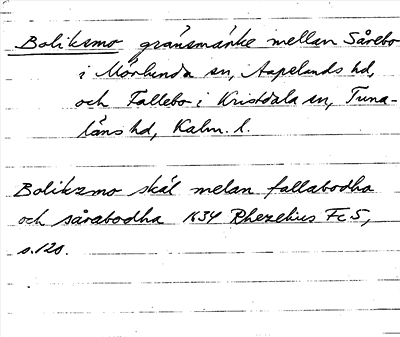 Boliksmo gränsmärke mellan Sårebo
i Mörlunda sn, Aspelands hd,
och Fallebo i Kristdala sn, Tuna-
läns hd, Kalm. l.
Bolikzmo skäl melan fallabodha
och sårabodha 1634 Rhezelius Fc5,
s.120.